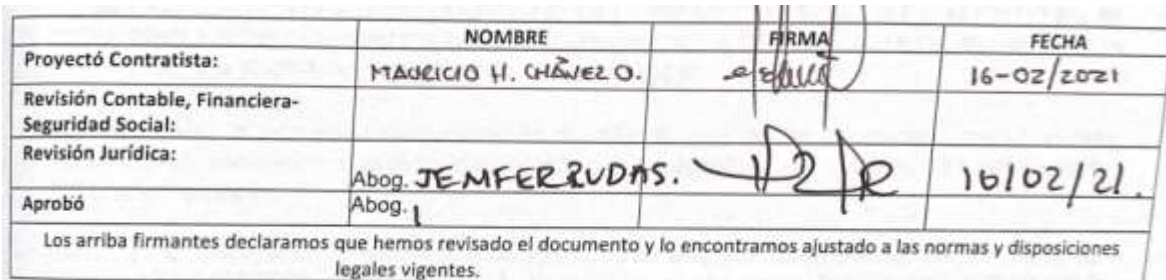 NOMBRE FIRMA FECHA
Proyectó Contratista: MAURICIO H. CHÁVEZ O. 16-02/2021
Revisión Contable, Financiera-
Seguridad Social:
Revisión Jurídica:
Abog. JEMFER RUDAS. 16/02/21.
Aprobó Abog.
Los arriba firmantes declaramos que hemos revisado el documento y lo encontramos ajustado a las normas y disposiciones
legales vigentes.